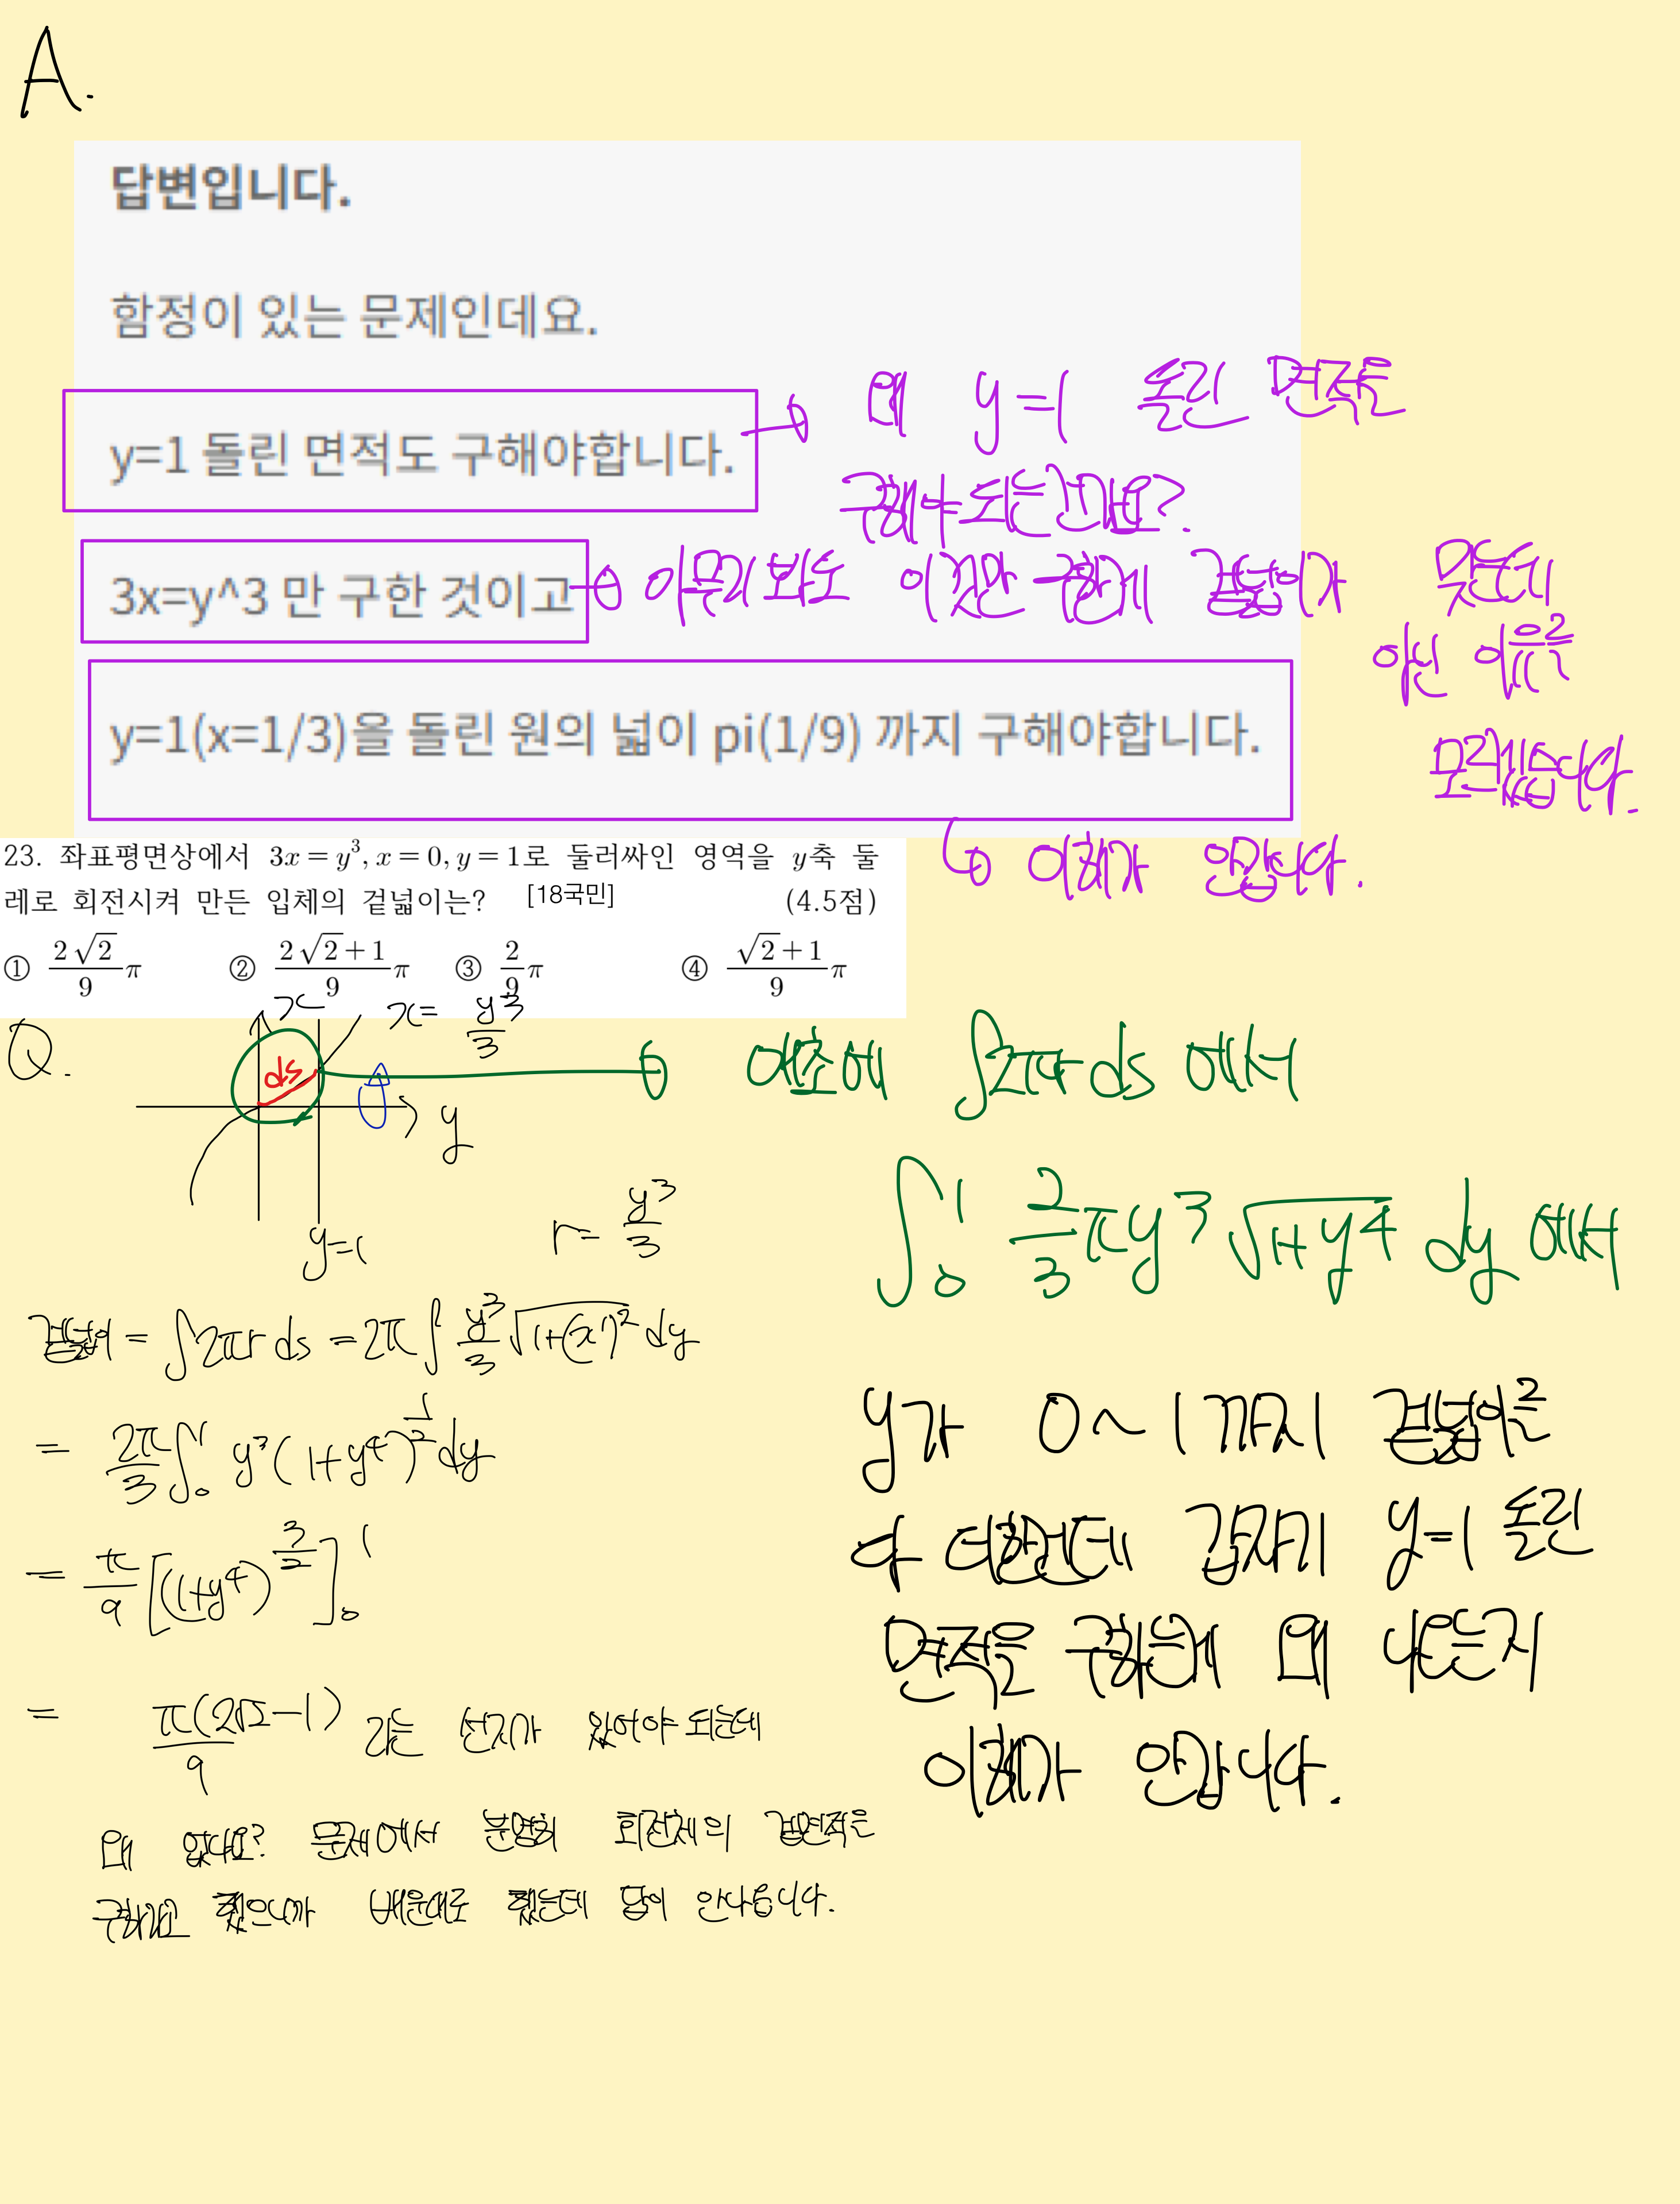 A.
답변입니다.
함정이 있는 문제인데요.
y=1 돌린 면적도 구해야합니다.
왜 y=1 돌린 면적을
구해야 되는건가요?
3x=y^3 만 구한 것이고
아무리 봐도 이것만 구한게 겉넓이가 맞는데
아닌 이유를
모르겠습니다.
y=1(x=1/3)을 돌린 원의 넓이 pi(1/9) 까지 구해야합니다.
이해가 안갑니다.
23. 좌표평면상에서 3x = y³, x = 0, y = 1로 둘러싸인 영역을 y축 둘
레로 회전시켜 만든 입체의 겉넓이는? [18국민] (4.5점)
① 2√2/9 π ② (2√2+1)/9 π ③ 2/9 π ④ (√2+1)/9 π
Q.
x
x = y³/3
ds
y
y=1
r = y³/3
겉넓이 = ∫2πr ds = 2π∫ y³/3 √(1+(x')²) dy
= 2π/3 ∫₀¹ y³(1+y⁴)^(1/2) dy
= π/9 [(1+y⁴)^(3/2)]₀¹
= π(2√2-1)/9 라는 선지가 있어야 되는데
왜 없나요? 문제에서 분명히 회전체의 겉면적을
구하라고 했으니까 배운대로 했는데 답이 안나옵니다.
애초에 ∫2πr ds 에서
∫₀¹ 2/3 πy³ √(1+y⁴) dy 에서
y가 0~1 까지 겉넓이를
다 더한건데 갑자기 y=1 돌린
면적을 구하는게 왜 나오는지
이해가 안갑니다.